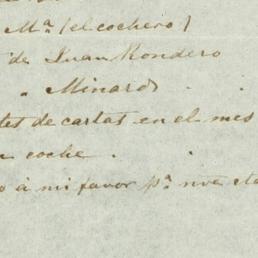 Mª (el cochero)
de Juan Rondero
" Minard
tes de cartas en el mes
coche .
á mi favor pª nve cta